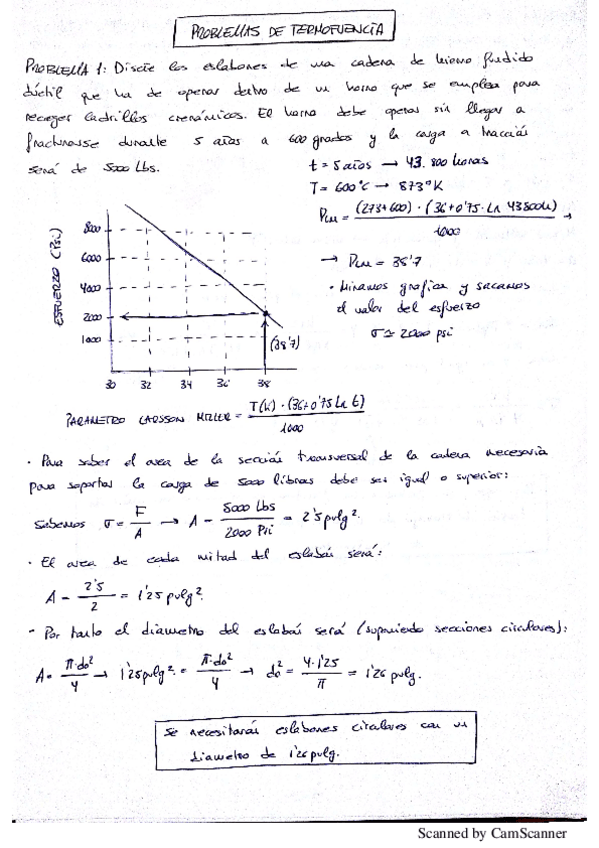 PROBLEMAS DE TERMOFLUENCIA
PROBLEMA 1: Diseñe los eslabones de una cadena de hierro fundido
dúctil que ha de operar dentro de un horno que se emplea para
recocer ladrillos cerámicos. El horno debe operar sin llegar a
fracturarse durante 5 años a 600 grados y la carga a tracción
será de 5000 Lbs.
t = 5 años → 43.800 horas
T = 600°C → 873°K
PLM = (273+600)·(36+0'75·Ln 43800h) / 1000 →
→ PLM = 38'7
· Miramos grafica y sacamos
el valor del esfuerzo
σ ≈ 2000 psi
ESFUERZO (Psi)
8000
6000
4000
2000
1000
(38'7)
30 32 34 36 38
PARAMETRO LARSSON MILLER = T(K)·(36+0'75 Ln t) / 1000
· Para saber el area de la sección transversal de la cadena necesaria
para soportar la carga de 5000 libras debe ser igual o superior:
Sabemos σ = F / A → A = 5000 Lbs / 2000 Psi = 2'5 pulg².
· El area de cada mitad del eslabón será:
A = 2'5 / 2 = 1'25 pulg².
· Por tanto el diametro del eslabón será (suponiendo secciones circulares):
A = π·do² / 4 → 1'25 pulg² = π·do² / 4 → do² = 4·1'25 / π = 1'26 pulg.
Se necesitarán eslabones circulares con un
diametro de 1'26 pulg.
Scanned by CamScanner